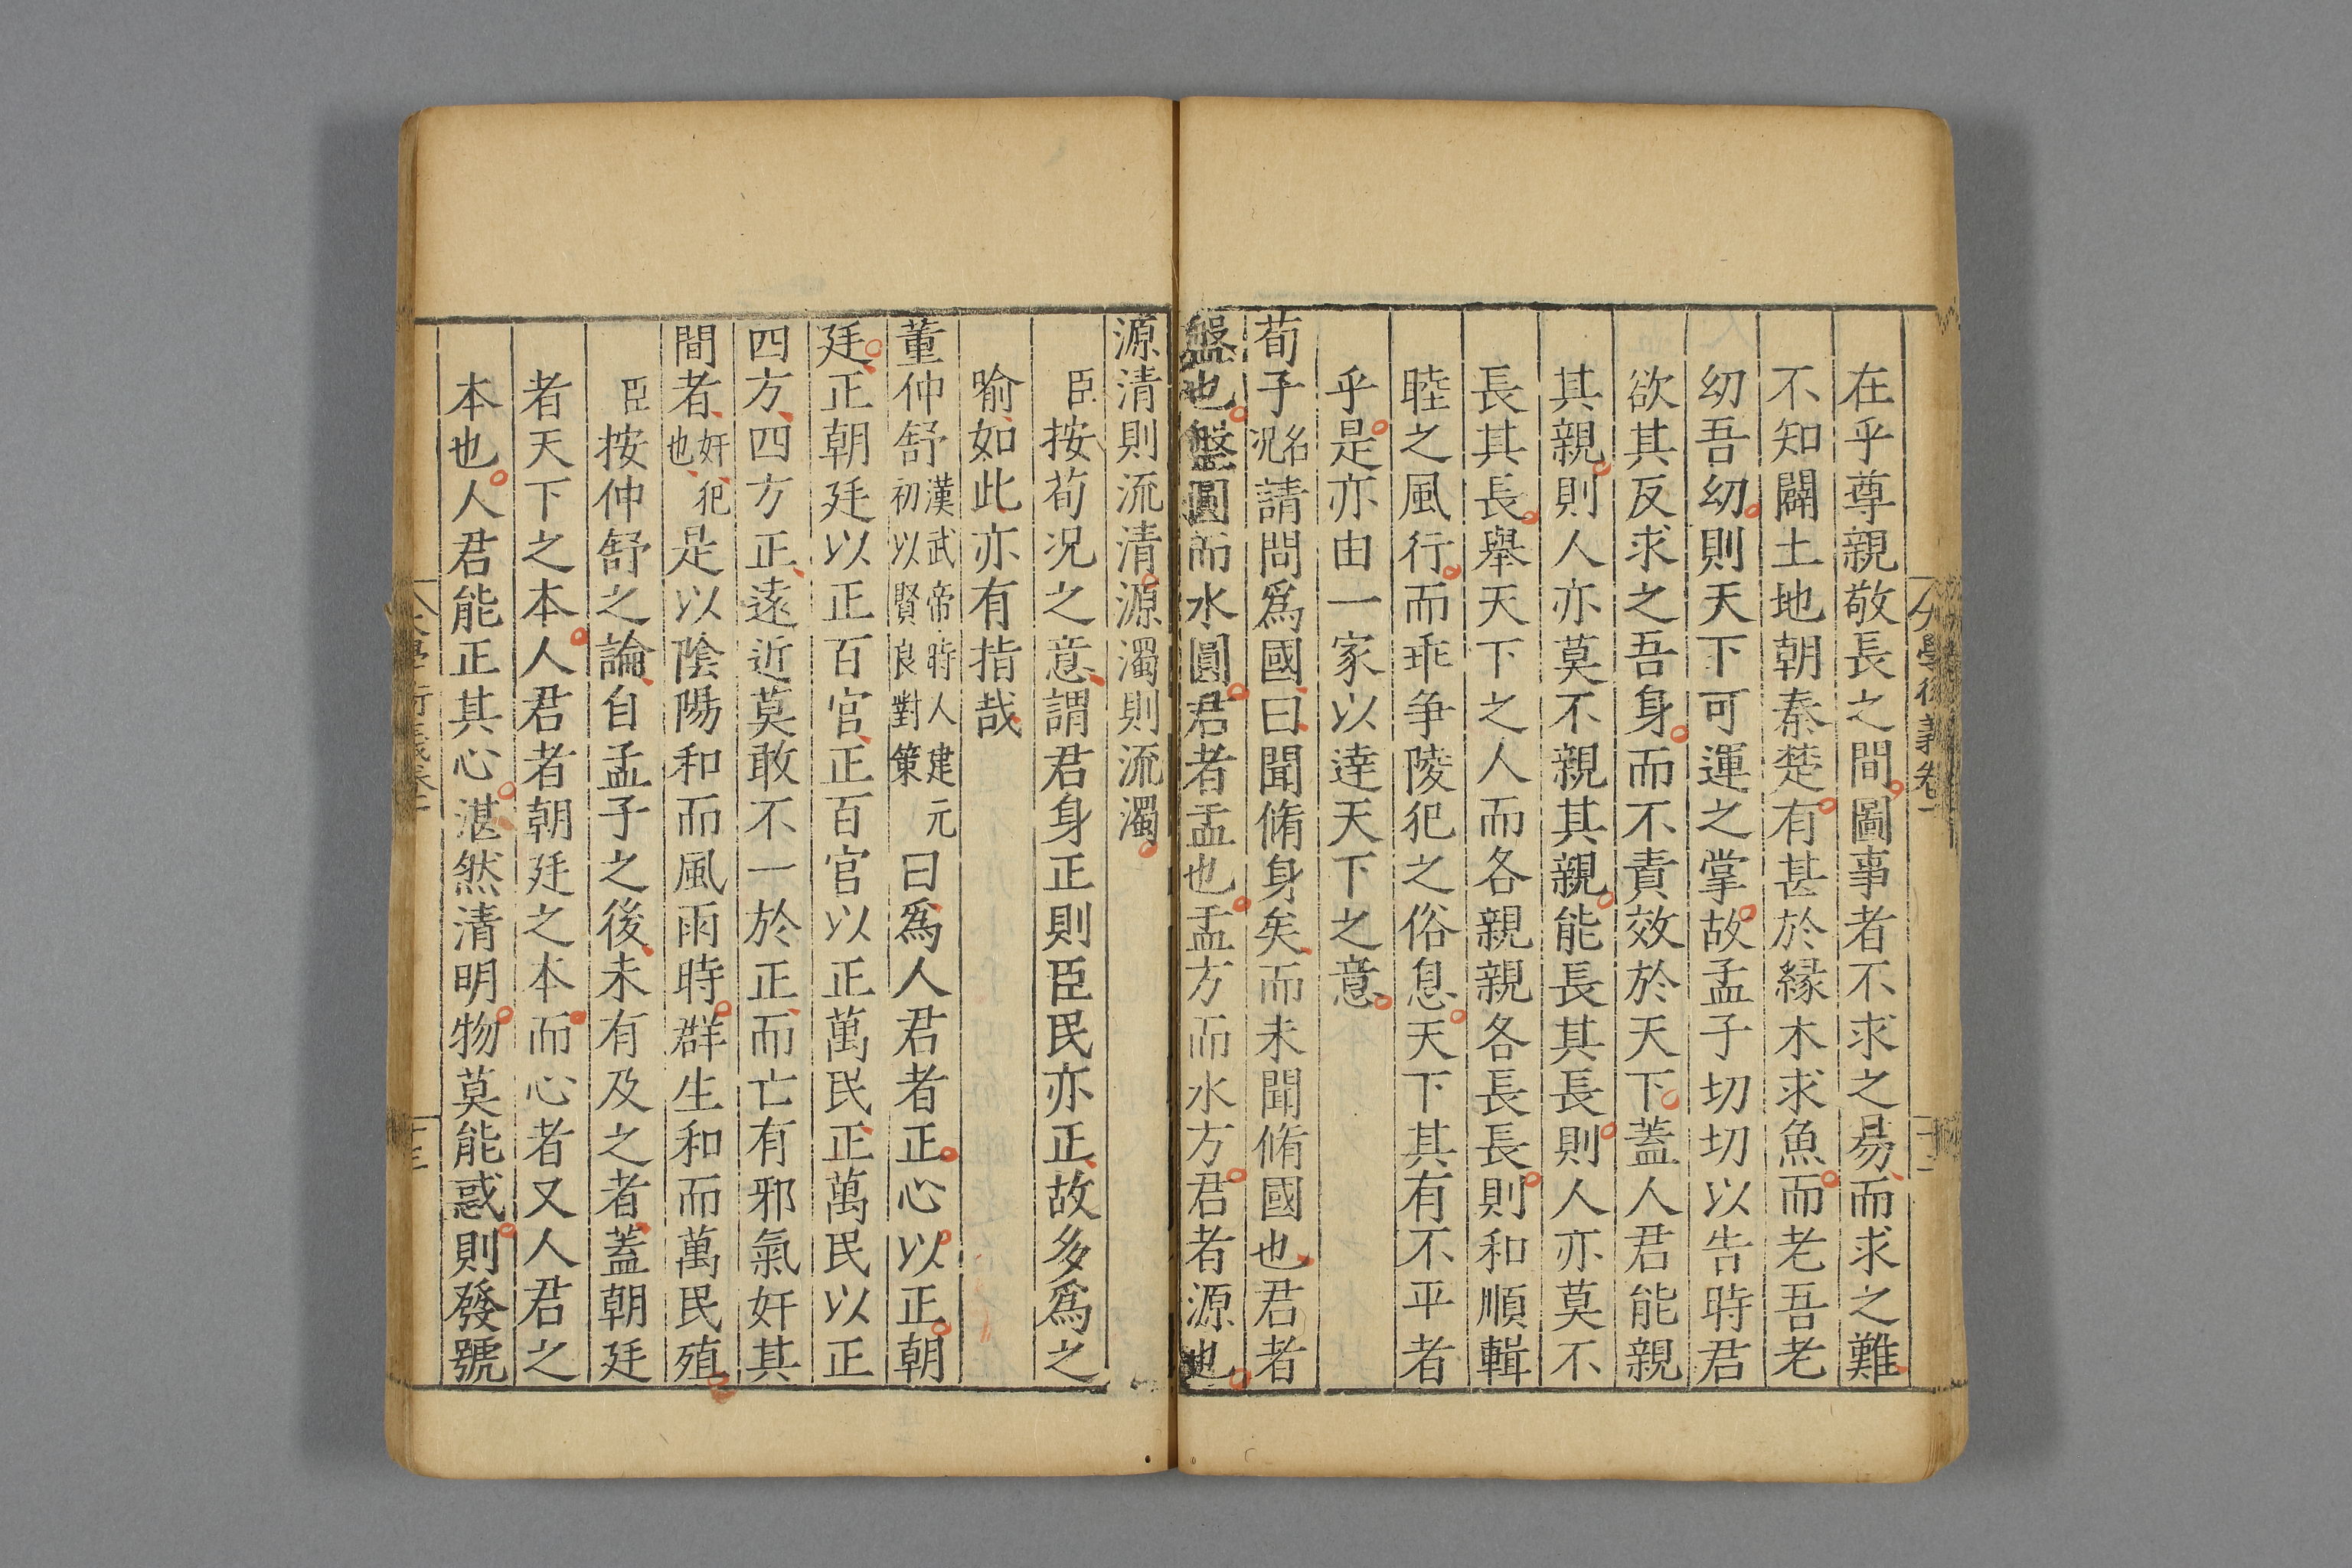 在乎尊親敬長之間圖事者不求之易而求之難
不知闢土地朝秦楚有甚於緣木求魚而老吾老
幼吾幼則天下可運之掌故孟子切切以告時君
欲其反求之吾身而不責效於天下蓋人君能親
其親則人亦莫不親其親能長其長則人亦莫不
長其長舉天下之人而各親親各長長則和順輯
睦之風行而乖争陵犯之俗息天下其有不平者
乎是亦由一家以達天下之意
荀子名况請問爲國曰聞脩身矣而未聞脩國也君者
盤也盤圓而水圓君者盂也盂方而水方君者源也
源清則流清源濁則流濁
臣按荀况之意謂君身正則臣民亦正故多爲之
喻如此亦有指哉
董仲舒漢武帝時人建元初以賢良對策曰爲人君者正心以正朝
廷正朝廷以正百官正百官以正萬民正萬民以正
四方四方正遠近莫敢不一於正而亡有邪氣奸其
間者奸犯也是以陰陽和而風雨時群生和而萬民殖
臣按仲舒之論自孟子之後未有及之者蓋朝廷
者天下之本人君者朝廷之本而心者又人君之
本也人君能正其心湛然清明物莫能惑則發號